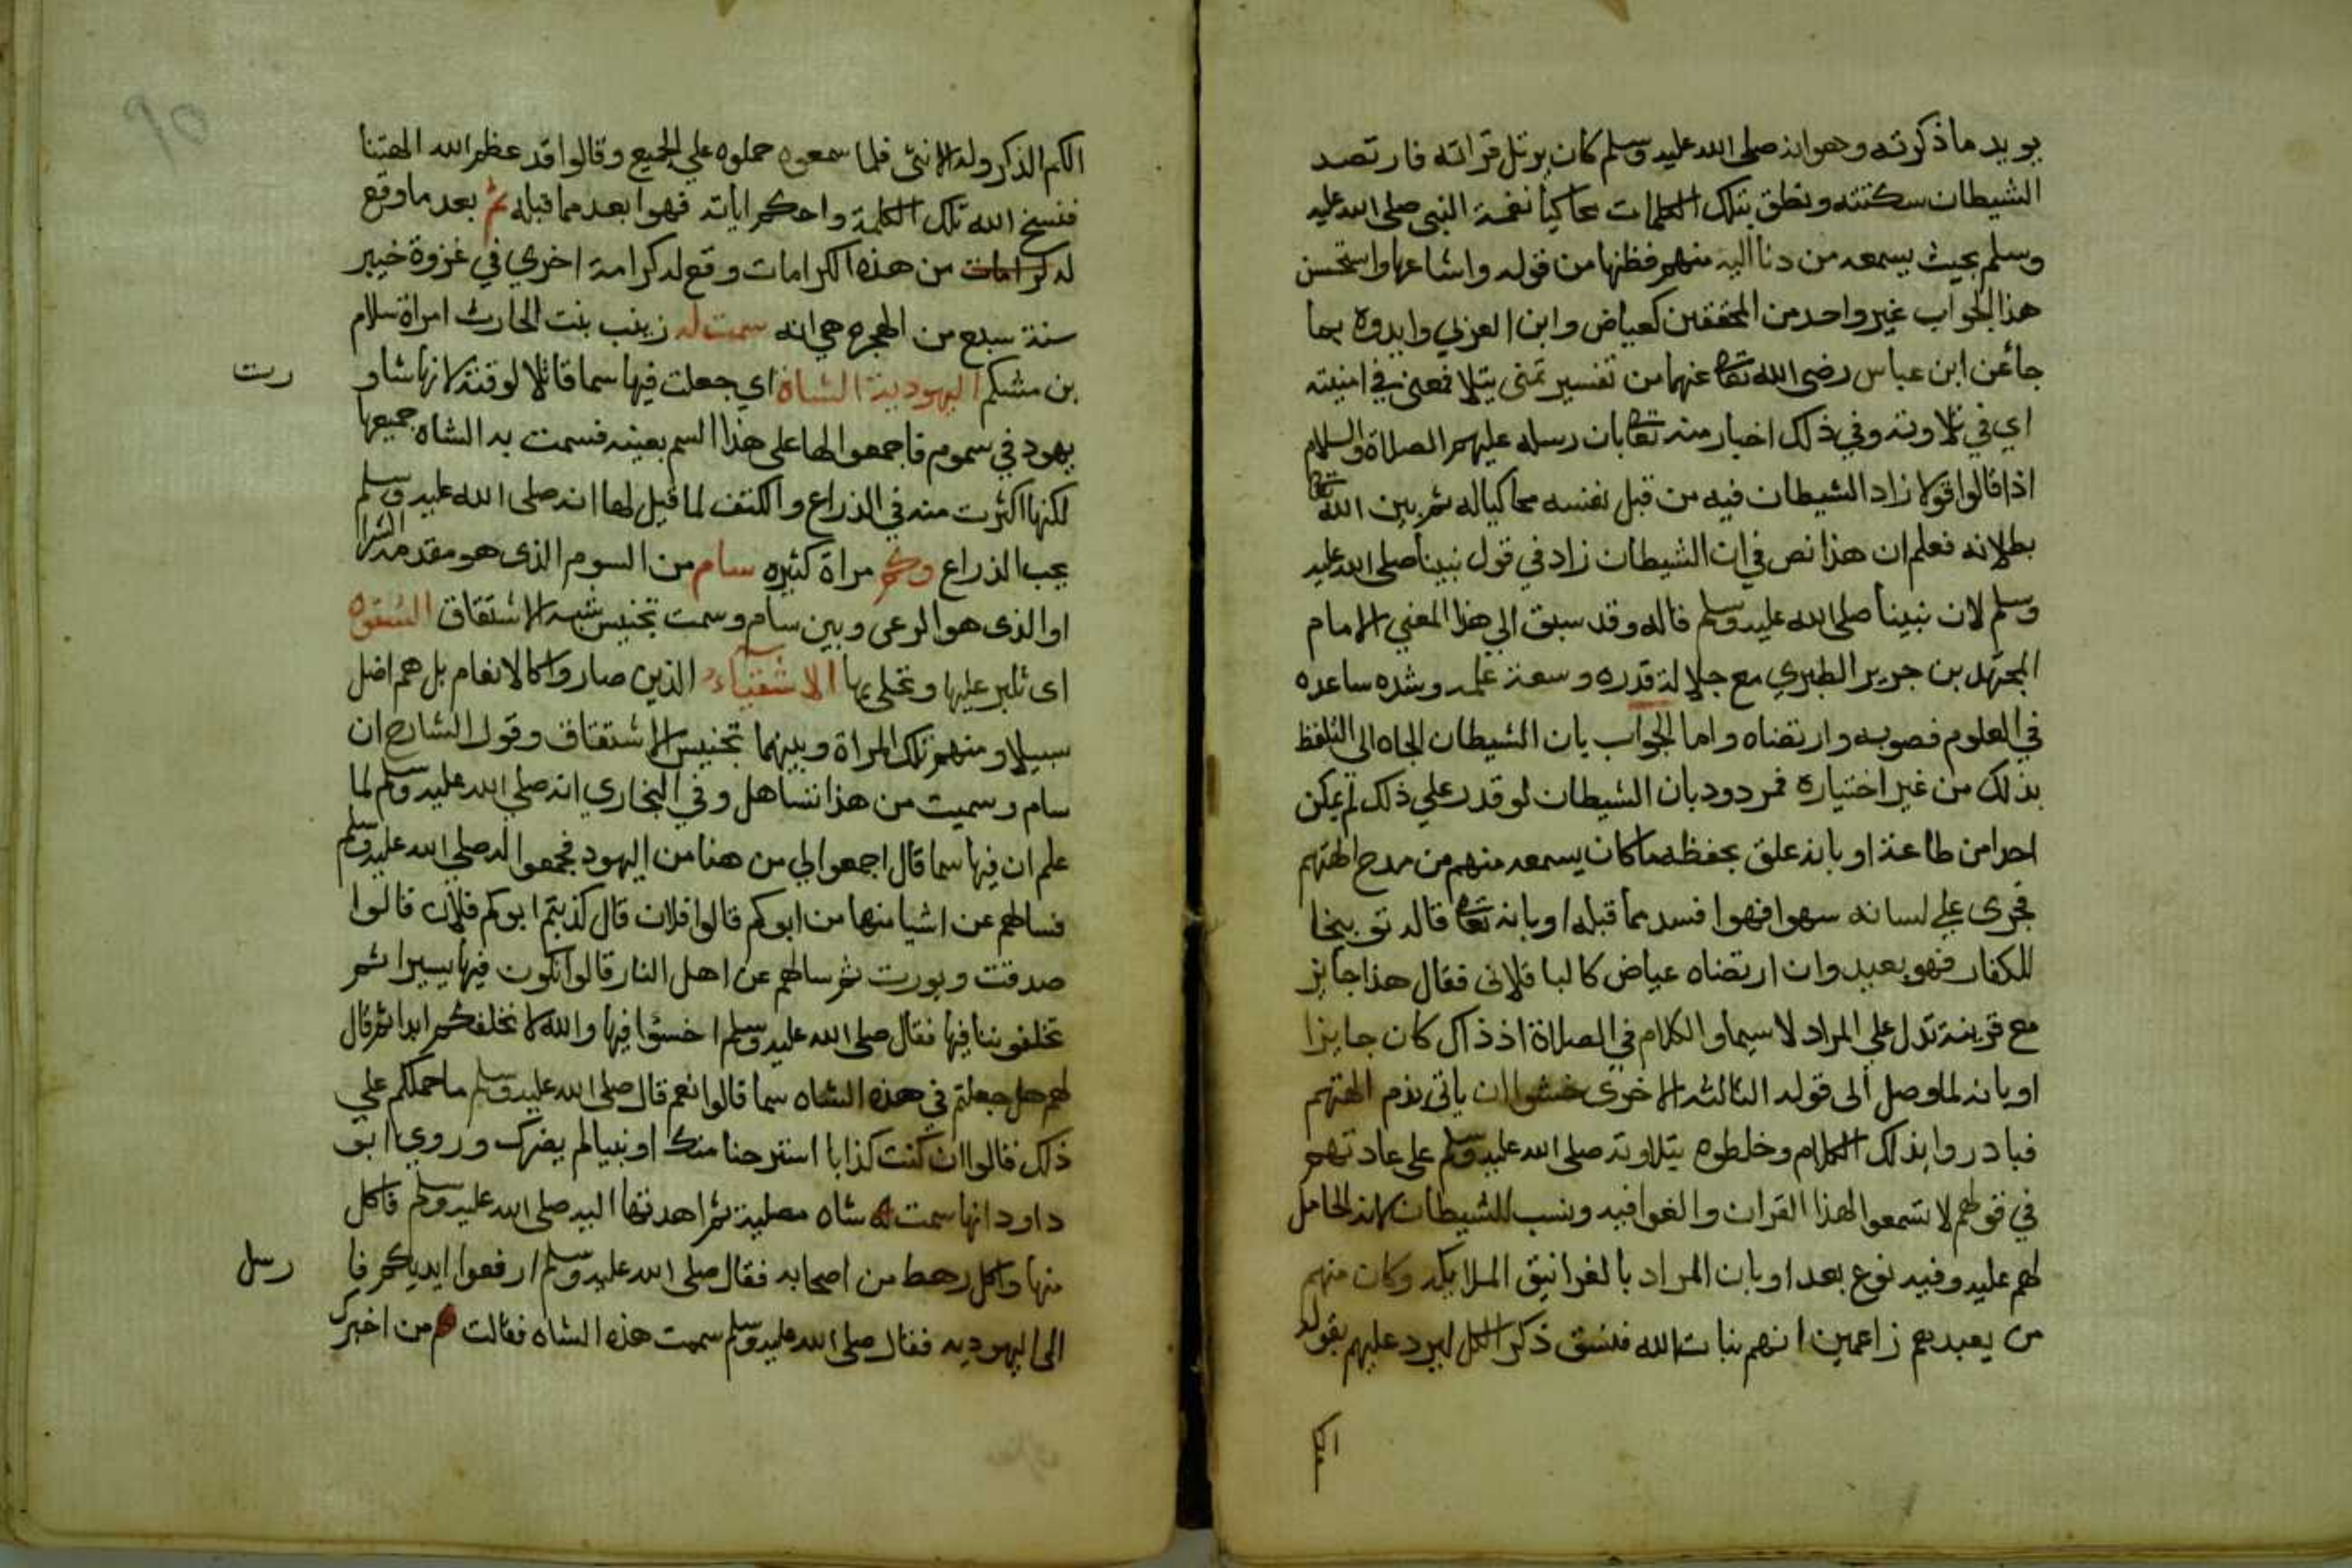 يويد ما ذكرته وهو انه صلى الله عليه وسلم كان يرتل قراته فارتصد
الشيطان سكتته ونطق بتلك الكلمات محاكيا نغمة النبي صلى الله عليه
وسلم بحيث يسمعه من دنا اليه منهم فظنها من قوله واشاعها واستحسن
هذا الجواب غير واحد من المحققين كعياض وابن العربي وايدوه بما
جا عن ابن عباس رضى الله تعا عنهما من تفسير تمنى بتلا فمعنى في امنيته
اي في تلاوته وفي ذلك اخبار منه تعا بان رسله عليهم الصلاة والسلام
اذا قالوا قولا زاد الشيطان فيه من قبل نفسه محاكيا له ثم يبين الله تعا
بطلانه فعلم ان هذا نص في ان الشيطان زاد في قول نبينا صلى الله عليه
وسلم لان نبينا صلى الله عليه وسلم قاله وقد سبق الي هذا المعني الامام
المجتهد بن جرير الطبري مع جلالة قدره وسعة علمه وشده ساعده
في العلوم فصوبه وارتضاه واما الجواب بان الشيطان الجاه الى التلفظ
بذلك من غير اختياره فمردود بان الشيطان لو قدر علي ذلك لم يمكن
احدا من طاعة او بانه علق بحفظه ما كان يسمعه منهم من مدح الهتهم
فجرى علي لسانه سهوا فهوا فسد مما قبله او بانه تعا قاله توبيخا
للكفار فهو بعيد وان ارتضاه عياض كالباقلانى فقال هذا جايز
مع قرينة تدل علي المراد لا سيما والكلام في الصلاة اذ ذاك كان جايزا
او بانه لما وصل الى قوله الثالثه الاخرى خشوا ان ياتي بذم الهتهم
فبادروا بذلك الكلام وخلطوه بتلاوته صلى الله عليه وسلم على عادتهم
في قولهم لا تسمعوا لهذا القران والغوا فيه ونسب للشيطان لانه الحامل
لهم عليه وفيه نوع بعد او بان المراد بالغرانيق الملايكه وكان منهم
من يعبدهم زاعمين انهم بنات الله فنسق ذكر الكل ليرد عليهم بقوله
الكم
٩٥
الكم الذكر وله الانثى فلما سمعوه حملوه علي الجميع وقالوا قد عظم الله الهتنا
فنسخ الله تلك الكلمة واحكم اياته فهوا بعد مما قبله ثم بعد ما وقع
له كرامات من هذه الكرامات وقع له كرامة اخري في غزوة خيبر
سنة سبع من الهجره هي انه سمت له زينب بنت الحارث امراة سلام
بن مشكم اليهودية الشاة اي جعلت فيها سما قاتلا لوقته لانها شاورت
يهود في سموم فاجمعوا لها على هذا السم بعينه فسمت به الشاه جميعها
لكنها اكثرت منه في الذراع والكتف لما قيل لها انه صلى الله عليه وسلم
يحب الذراع وكم مراة كثيره سام من السوم الذى هو مقدمة الشرا
او الذى هو الرعى وبين سام وسمت تجنيس شبه الاشتقاق الشقوه
اى تلبر عليها وتحلى بها الاشقياء الذين صاروا كالانعام بل هم اضل
سبيلا ومنهم تلك المراة وبينهما تجنيس الاشتقاق وقول الشارح ان
سام وسميت من هذا تساهل وفي البخاري انه صلى الله عليه وسلم لما
علم ان فيها سما قال اجمعوا لي من هنا من اليهود فجمعوا له صلي الله عليه وسلم
فسالهم عن اشيا منها من ابوكم قالوا فلان قال كذبتم ابوكم فلان قالوا
صدقت وبورت ثم سالهم عن اهل النار قالوا نكون فيها يسيرا ثم
تخلفوننا فيها فقال صلى الله عليه وسلم اخسئوا فيها والله لا نخلفكم ابدا ثم قال
لهم هل جعلتم في هذه الشاه سما قالوا نعم قال صلى الله عليه وسلم ما حملكم علي
ذلك قالوا ان كنت كذابا استرحنا منك او نبيا لم يضرك وروي ابو
داود انها سمت شاه مصلية ثم اهدتها اليه صلى الله عليه وسلم فاكل
منها واكل رهط من اصحابه فقال صلى الله عليه وسلم ارفعوا ايديكم فارسل
الى اليهوديه فقال صلى الله عليه وسلم سممت هذه الشاه فقالت من اخبرك